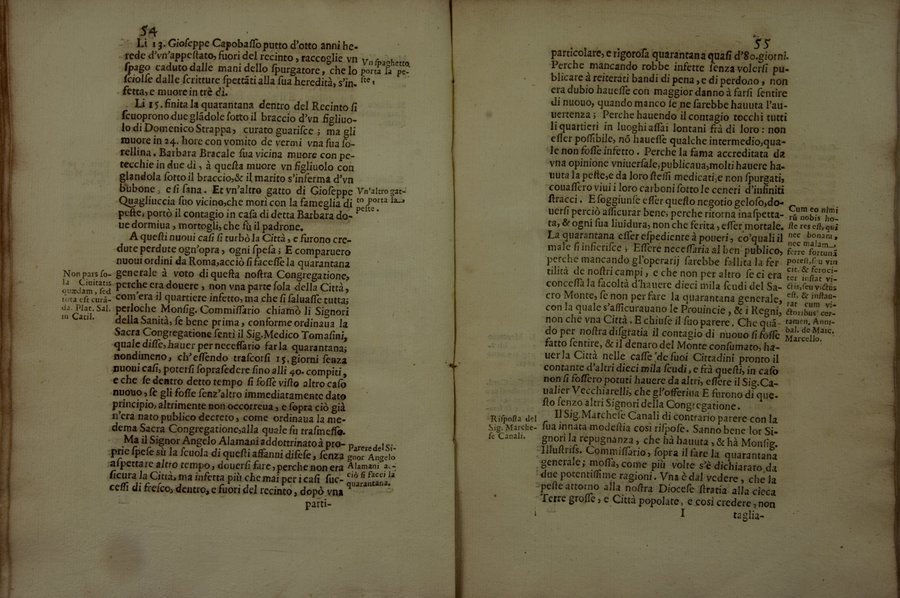 54
Li 13. Gioseppe Capobasso putto d'otto anni he-
rede d'vn'appestato, fuori del recinto, raccoglie vn
spago caduto dalle mani dello spurgatore, che lo
sciolse dalle scritture spettāti alla sua heredità, s'in-
fetta, e muore in trè dì.
Vn spaghetto
porta la pe-
ste.
Li 15. finita la quarantana dentro del Recinto si
scuoprono due glādole sotto il braccio d'vn figliuo-
lo di Domenico Strappa, curato guarisce; ma gli
muore in 24. hore con vomito de vermi vna sua so-
rellina. Barbara Bracale sua vicina muore con pe-
tecchie in due dì, à questa muore vn figliuolo con
glandola sotto il braccio, & il marito s'inferma d'vn
bubone, e si sana. Et vn'altro gatto di Gioseppe
Quagliuccia suo vicino, che morì con la fameglia di
peste, portò il contagio in casa di detta Barbara do-
ue dormiua, mortogli, che fù il padrone.
Vn'altro gat-
to porta la
peste.
A questi nuoui casi si turbò la Città, e furono cre-
dute perdute ogn'opra, ogni spesa; E comparuero
nuoui ordini da Roma, acciò si facesse la quarantana
generale à voto di questa nostra Congregatione,
perche era douere, non vna parte sola della Città,
com'era il quartiere infetto, ma che si saluasse tutta;
perloche Monsig. Commissario chiamò li Signori
della Sanità, se bene prima, conforme ordinaua la
Sacra Congregatione sentì il Sig. Medico Tomasini,
quale disse, hauer per necessario far la quarantana;
nondimeno, ch'essendo trascorsi 15. giorni senza
nuoui casi, potersi soprasedere sino alli 40. compiti,
e che se dentro detto tempo si fosse visto altro caso
nuouo, se gli fosse senz'altro immediatamente dato
principio, altrimente non occorreua, e sopra ciò già
n'era nato publico decreto, come ordinaua la me-
dema Sacra Congregatione, alla quale fu trasmesso.
Non pars so-
la Ciuitatis
quædam, sed
tota est curā-
da. Plat. Sal.
in Catil.
Ma il Signor Angelo Alamani addottrinato à pro-
prie spese sù la scuola di questi affanni disse, senza
aspettare altro tempo, douersi fare, perche non era
sicura la Città, ma infetta più che mai per i casi suc-
cessi di fresco, dentro, e fuori del recinto, dopò vna
parti-
Parere del Si-
gnor Angelo
Alamani ac-
ciò si facci la
quarantana.
55
particolare, e rigorosa quarantana quasi d'80. giorni.
Perche mancando robbe infette senza volersi pu-
blicare à reiterati bandi di pena, e di perdono, non
era dubio hauesse con maggior danno à farsi sentire
di nuouo, quando manco se ne sarebbe hauuta l'au-
uertenza; Perche hauendo il contagio tocchi tutti
li quartieri in luoghi assai lontani frà di loro: non
esser possibile, nō hauesse qualche intermedio, qua-
le non fosse infetto. Perche la fama accreditata da
vna opinione vniuersale, publicaua, molti hauere ha-
uuta la peste, e da loro stessi medicati, e non spurgati,
couassero viui i loro carboni sotto le ceneri d'infiniti
stracci. E soggiunse esser questo negotio geloso, do-
uersi perciò assicurar bene, perche ritorna inaspetta-
ta, & ogni sua liuidura, non che ferita, esser mortale.
La quarantana esser espediente à poueri, co'quali il
male si inferisce; Essere necessaria al ben publico,
perche mancando gl'operarij sarebbe fallita la fer-
tilità de nostri campi, e che non per altro se ci era
concessa la facoltà d'hauere dieci mila scudi del Sa-
cro Monte, se non per fare la quarantana generale,
con la quale s'assicurauano le Prouincie, & i Regni,
non che vna Città. E chiuse il suo parere. Che quā-
do per nostra disgratia il contagio di nuouo si fosse
fatto sentire, & il denaro del Monte consumato, ha-
uer la Città nelle casse de suoi Cittadini pronto il
contante d'altri dieci mila scudi, e frà questi, in caso
non si fossero potuti hauere da altri, essere il Sig. Ca-
ualier Vecchiarelli, che gl'offeriua E furono di que-
sto senzo altri Signori della Congregatione.
Cum eo nimi
rū nobis ho-
ste res est, qui
nec bonam,
nec malam
ferre fortunā
potest, seu vin
cit, & feroci-
ter instat vi-
ctis, seu victus
est, & instau-
rat cum vi-
ctoribus cer-
tamen, Annī-
bal. de Marc.
Marcello.
Il Sig. Marchese Canali di contrario parere con la
sua innata modestia così rispose. Sanno bene lor Si-
gnori la repugnanza, che hà hauuta, & hà Monsig.
Illustriss. Commissario, sopra il fare la quarantana
generale; mossa, come più volte s'è dichiarato, da
due potentissime ragioni. Vna è dal vedere, che la
peste attorno alla nostra Diocese stratia alla cieca
Terre grosse, e Città popolate, e così credere, non
Risposta del
Sig. Marche-
se Canali.
I
taglia-